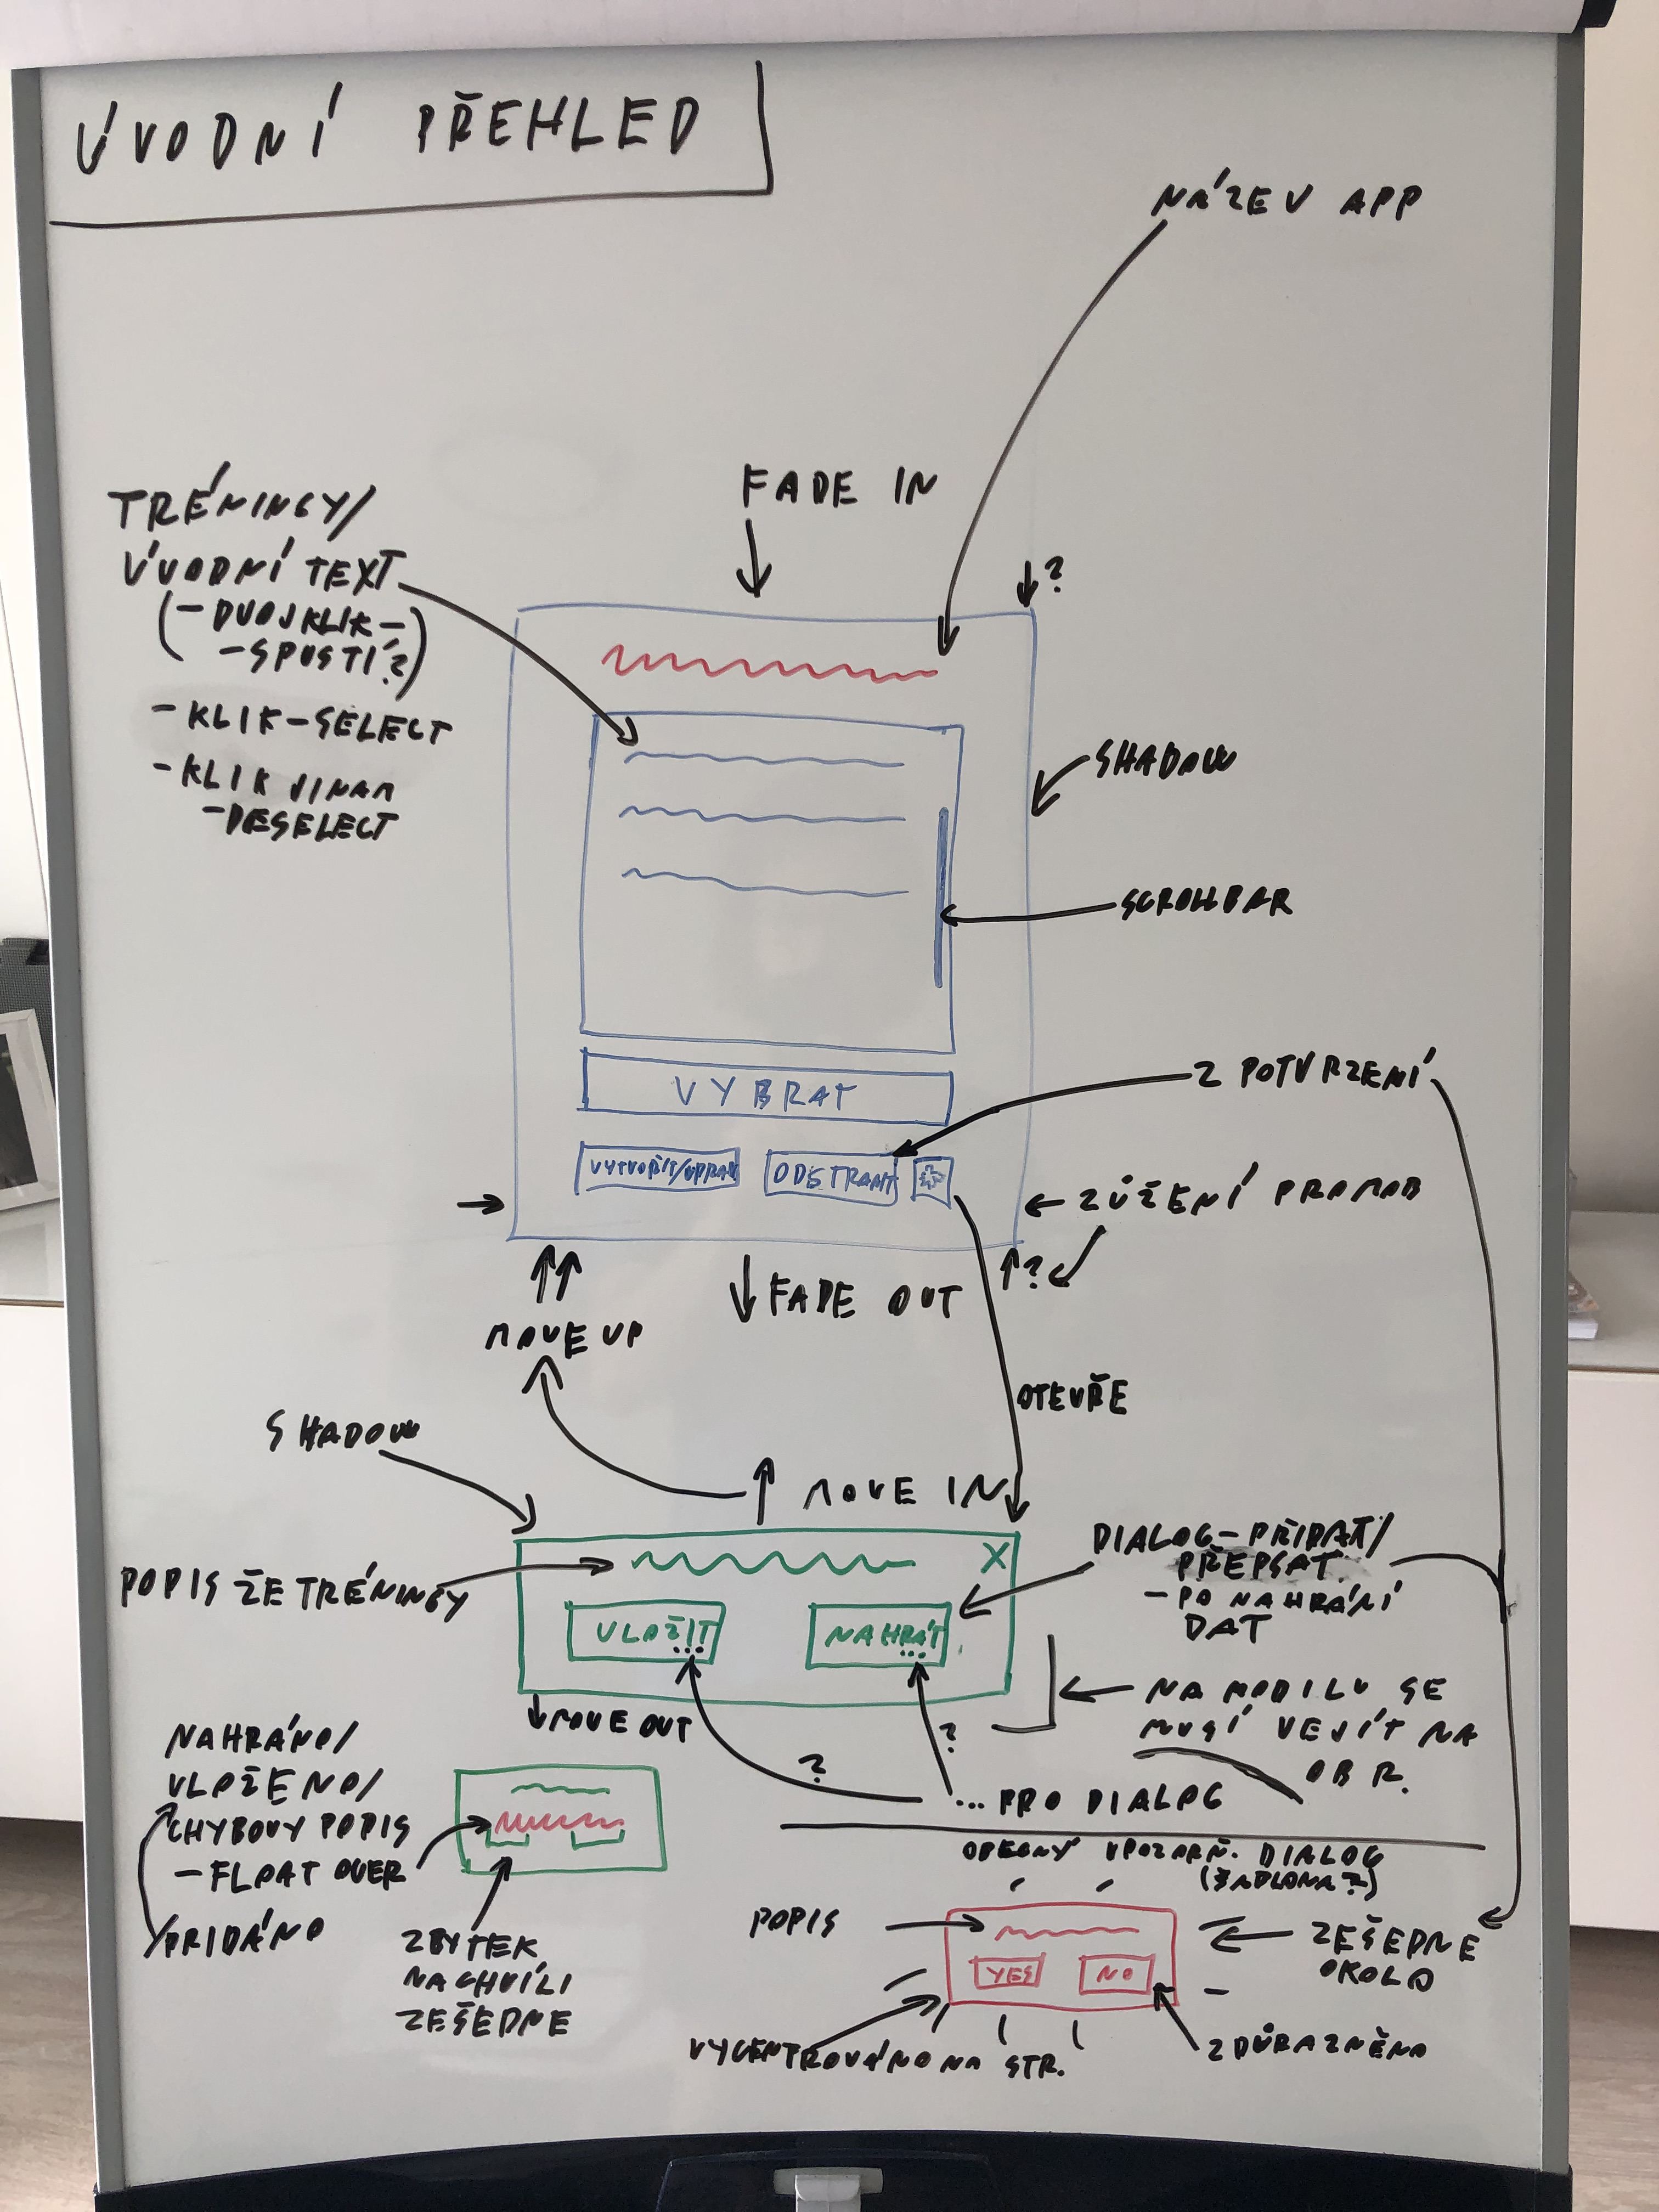 ÚVODNÍ PŘEHLED
NÁZEV APP
FADE IN
TRÉNINGY/
ÚVODNÍ TEXT
(- DVOJKLIK -
- SPUSTÍ?)
- KLIK - SELECT
- KLIK JINAM
- DESELECT
?
SHADOW
SCROLLBAR
VYBRAT
2 POTVRZENÍ
VYTVOŘIT/UPRAV
ODSTRANIT
ZÚŽENÍ PRO MOB
?
MOVE UP
FADE OUT
OTEVŘE
SHADOW
MOVE IN
X
POPIS ŽE TRÉNINGY
VLOŽIT
...
NAHRÁT
...
DIALOG - PŘIDAT/
PŘEPSAT
- PO NAHRÁNÍ
DAT
MOVE OUT
NA MOBILU SE
MUSÍ VEJÍT NA
OBR.
?
?
... PRO DIALOG
NAHRÁNO/
VLOŽENO/
CHYBOVÝ POPIS
- FLOAT OVER
/PŘIDÁNO
ZBYTEK
NACHVÍLI
ZEŠEDNE
OBECNÝ UPOZORN. DIALOG
(ŠABLONA?)
POPIS
YES
NO
ZEŠEDNE
OKOLO
VYCENTROVÁNO NA STR.
ZDŮRAZNĚNO